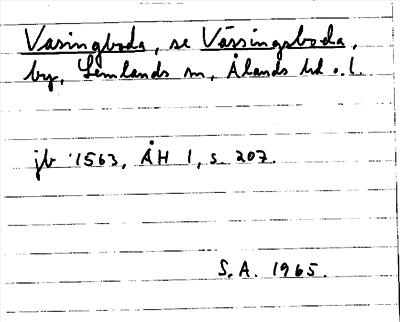 Vasingboda, se Vässingsboda,
by, Lemlands sn, Ålands hd o. l.
jb 1563, ÅH 1, s 207.
S. A. 1965.